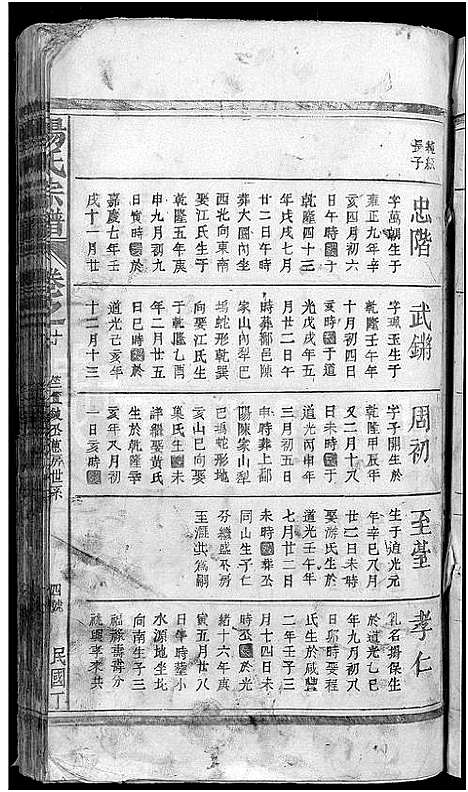 純級長子
忠階
字萬朝生于
雍正九年辛
亥四月初六
日午時歿于
乾隆四十三
年戊戌七月
廿二日午時
葬大園內坐
西北向東南
娶江氏生于
乾隆五年庚
申九月初九
日寅時歿於
嘉慶七年壬
戌十一月廿
武鏘
字珮玉生于
乾隆壬午年
十月初四日
時歿于道
光戊戌年五
月廿二日午
時葬鄱邑陳
家山內犂巴
塢蛇形乾巽
向娶江氏生
于乾隆乙酉
年二月廿五
日巳時歿於
道光己亥年
十二月十三
周初
字子開生於
乾隆甲辰年
又二月十八
日未時歿于
道光丙申年
三月初五日
申時葬上鄱
陽陳家山犂
巴塢蛇形地
亥山巳向娶
葉氏生歿未
詳繼娶黃氏
生於乾隆辛
亥年八月初
一日亥時歿
至臺
生于道光元
年辛巳八月
廿二日未時
娶游氏生於
道光壬午年
七月廿二日
未時歿葬丞
同山生子仁
孝仁
乳名揚保生
於道光乙巳
年九月初九
日卯時娶程
氏生於咸豐
二年壬子三
月十四日未
時歿於光
緒十六年庚
寅五月廿八
日午時葬小
水源地坐北
向南生子三
福祿壽壽分
祧與孝來共
楊氏宗譜
卷之十
四號
民國丁